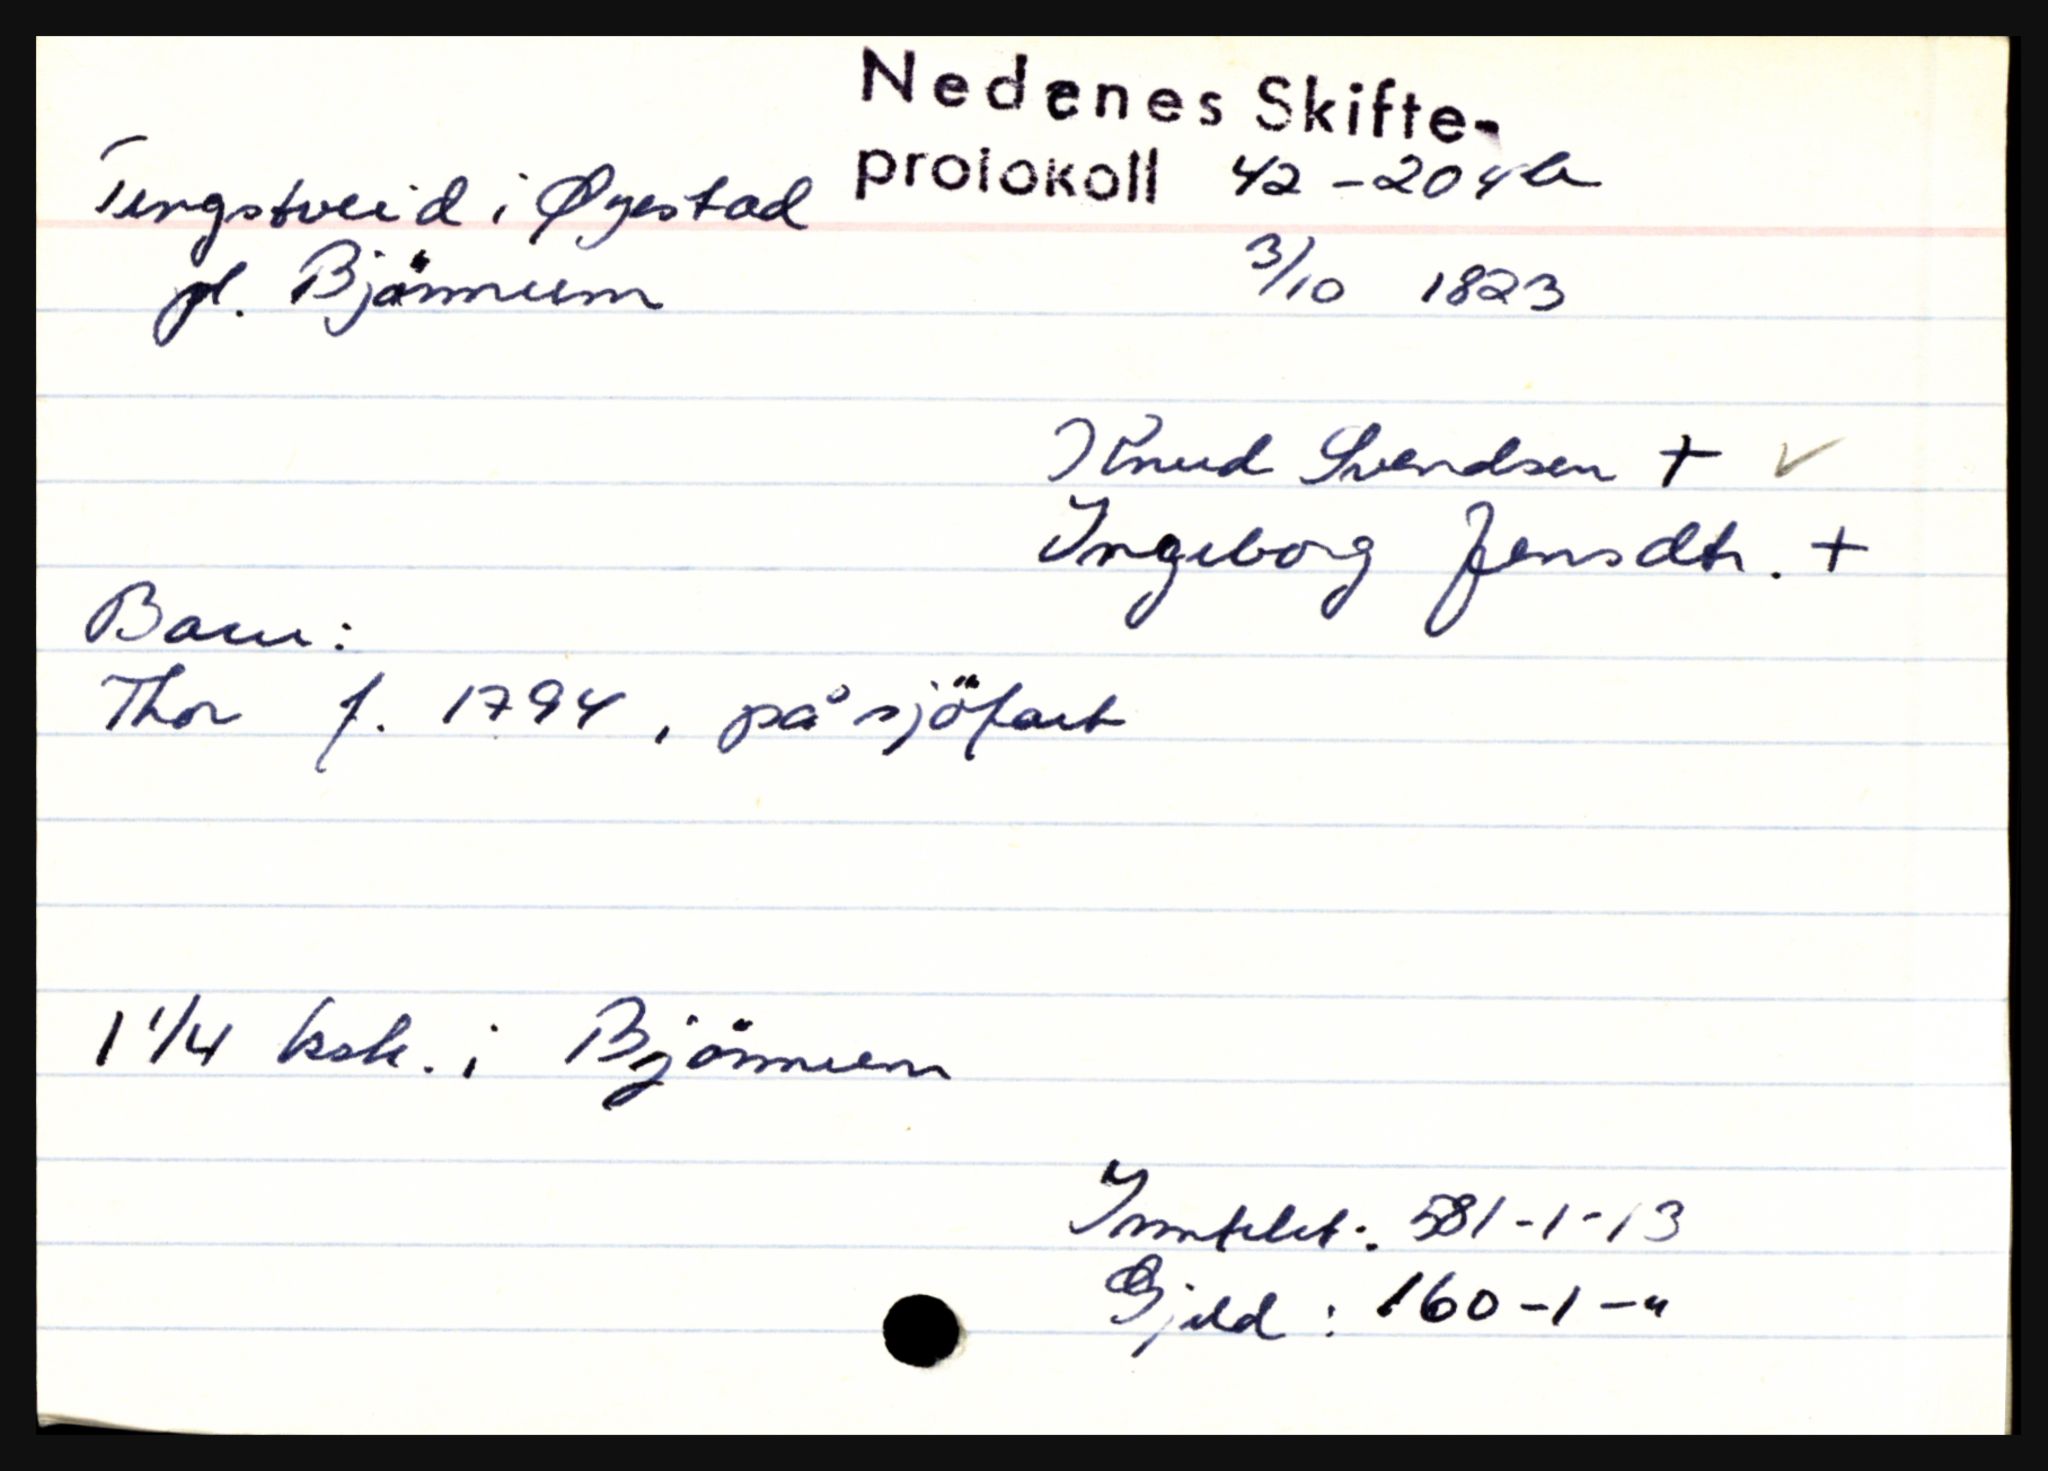 Nedenes Skifte-
protokoll 42-204b
Tingstveid i Øyestad
pl. Björnnum
3/10 1823
Knud Svendsen + ✓
Ingeborg Jensdtr. +
Barn:
Thor f. 1794, på sjöfart
1 1/4 ksk. i Björnnum
Inntekt: 581-1-13
Gjeld: 160-1-"